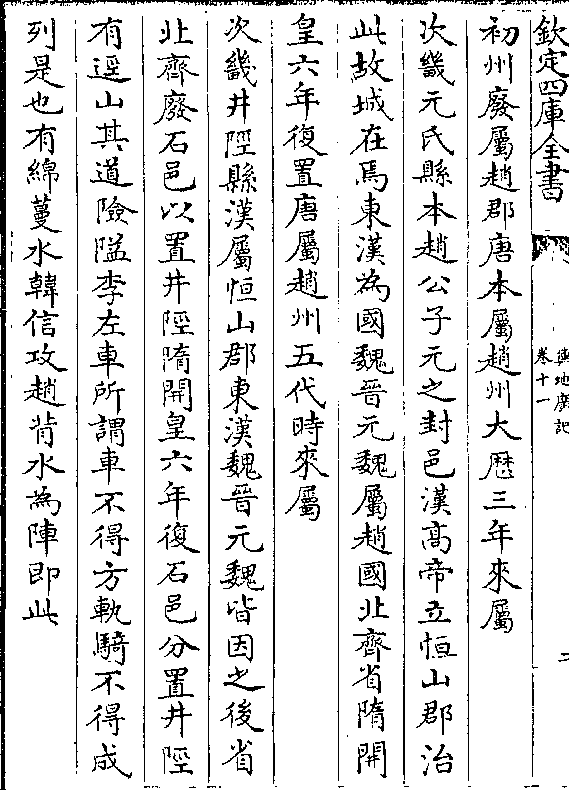 欽定四庫全書
輿地廣記
卷十一
二
初州廢屬趙郡唐本屬趙州大厯三年來屬
次畿元氏縣本趙公子元之封邑漢高帝立恒山郡治
此故城在焉東漢為國魏晉元魏屬趙國北齊省隋開
皇六年復置唐屬趙州五代時來屬
次畿井陘縣漢屬恒山郡東漢魏晉元魏皆因之後省
北齊廢石邑以置井陘隋開皇六年復石邑分置井陘
有陘山其道險隘李左車所謂車不得方軌騎不得成
列是也有綿蔓水韓信攻趙背水為陣即此